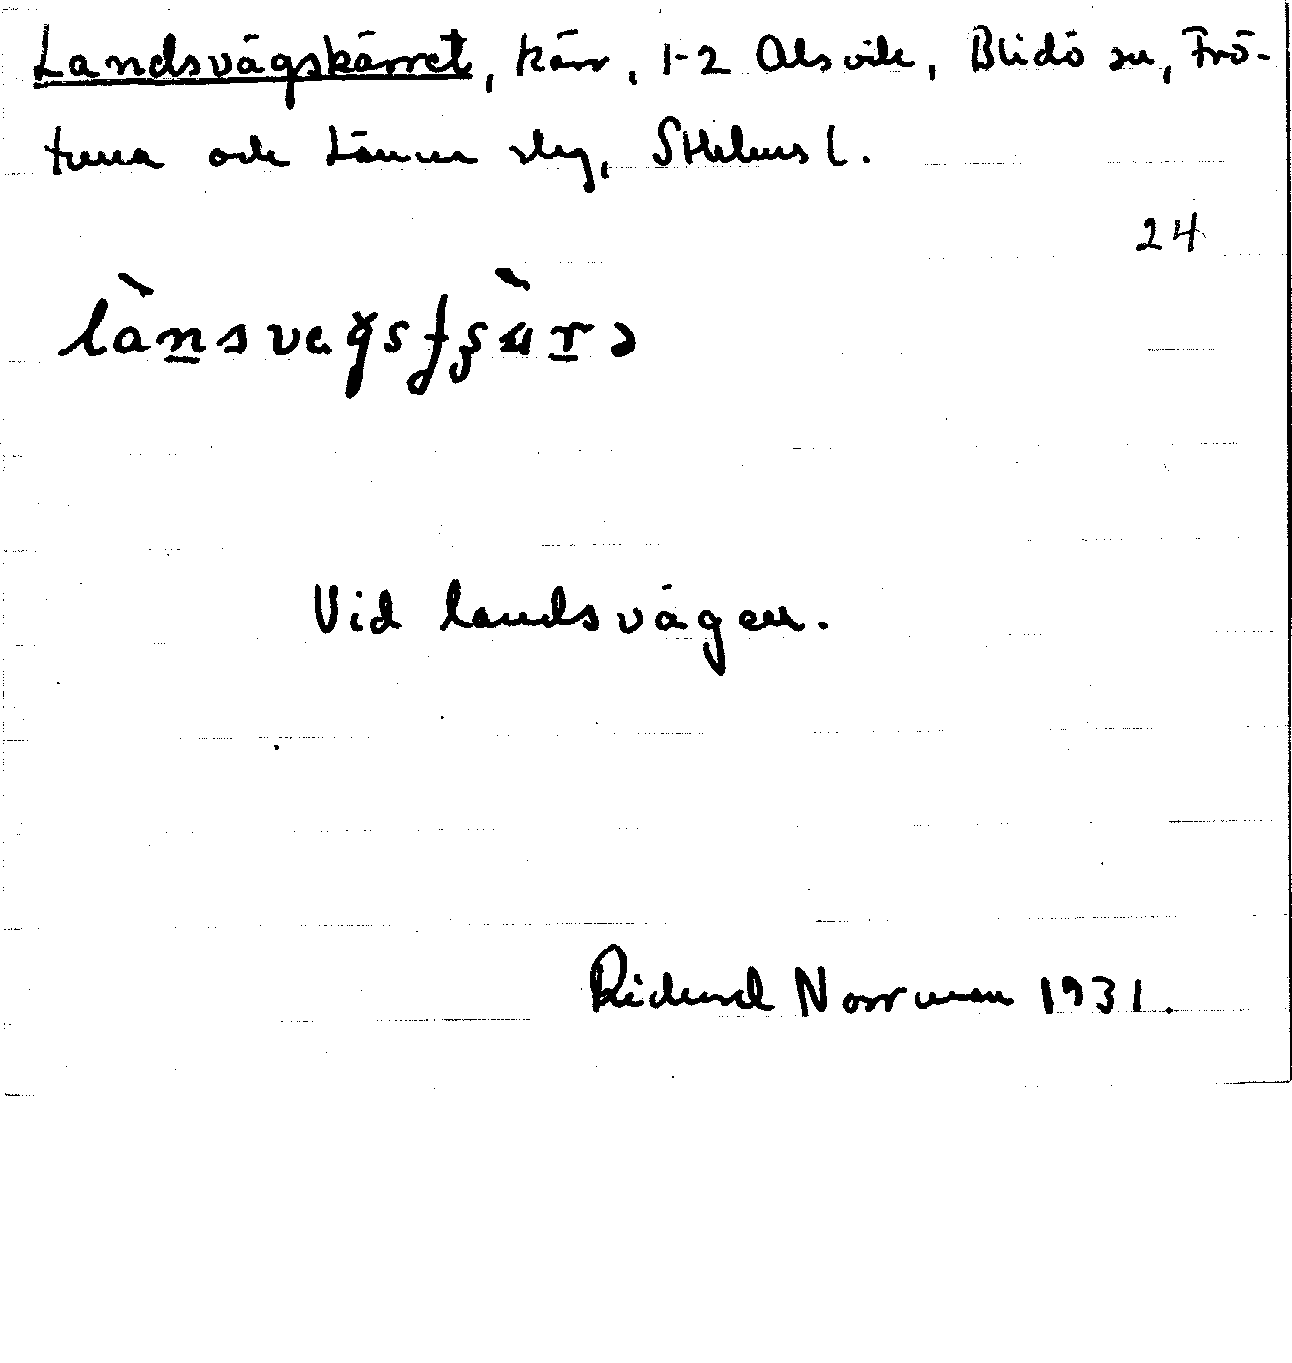 Landsvägskärret, kärr, 1-2 Alsvik, Blidö sn, Frö-
tuna och Länna slg, Sthlms l.
24
lànsvegsʃʂär̠ə
Vid landsvägen.
Rickard Norrman 1931.